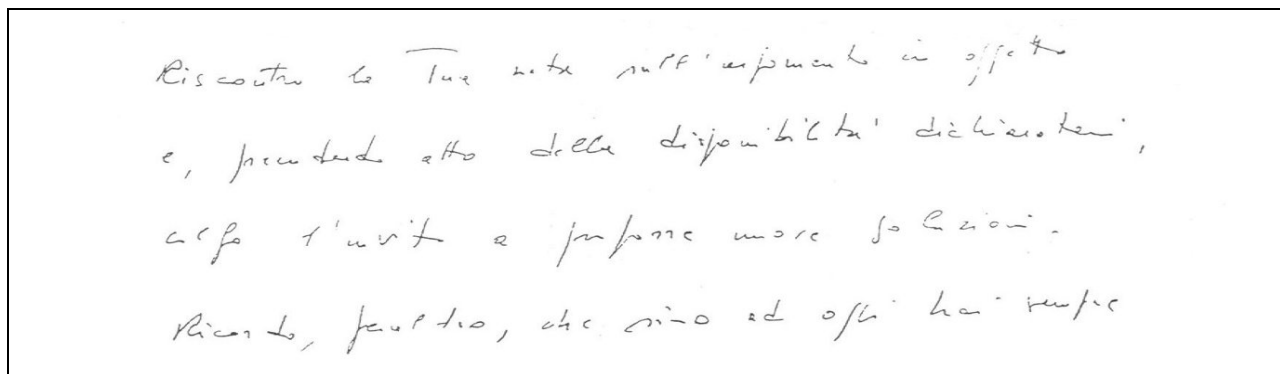 Riscontro la Tua nota sull'argomento in oggetto
e, prendendo atto della disponibilità dichiaratami,
colgo l'invito a proporre nuove soluzioni.
Ricordo, peraltro, che sino ad oggi hai sempre